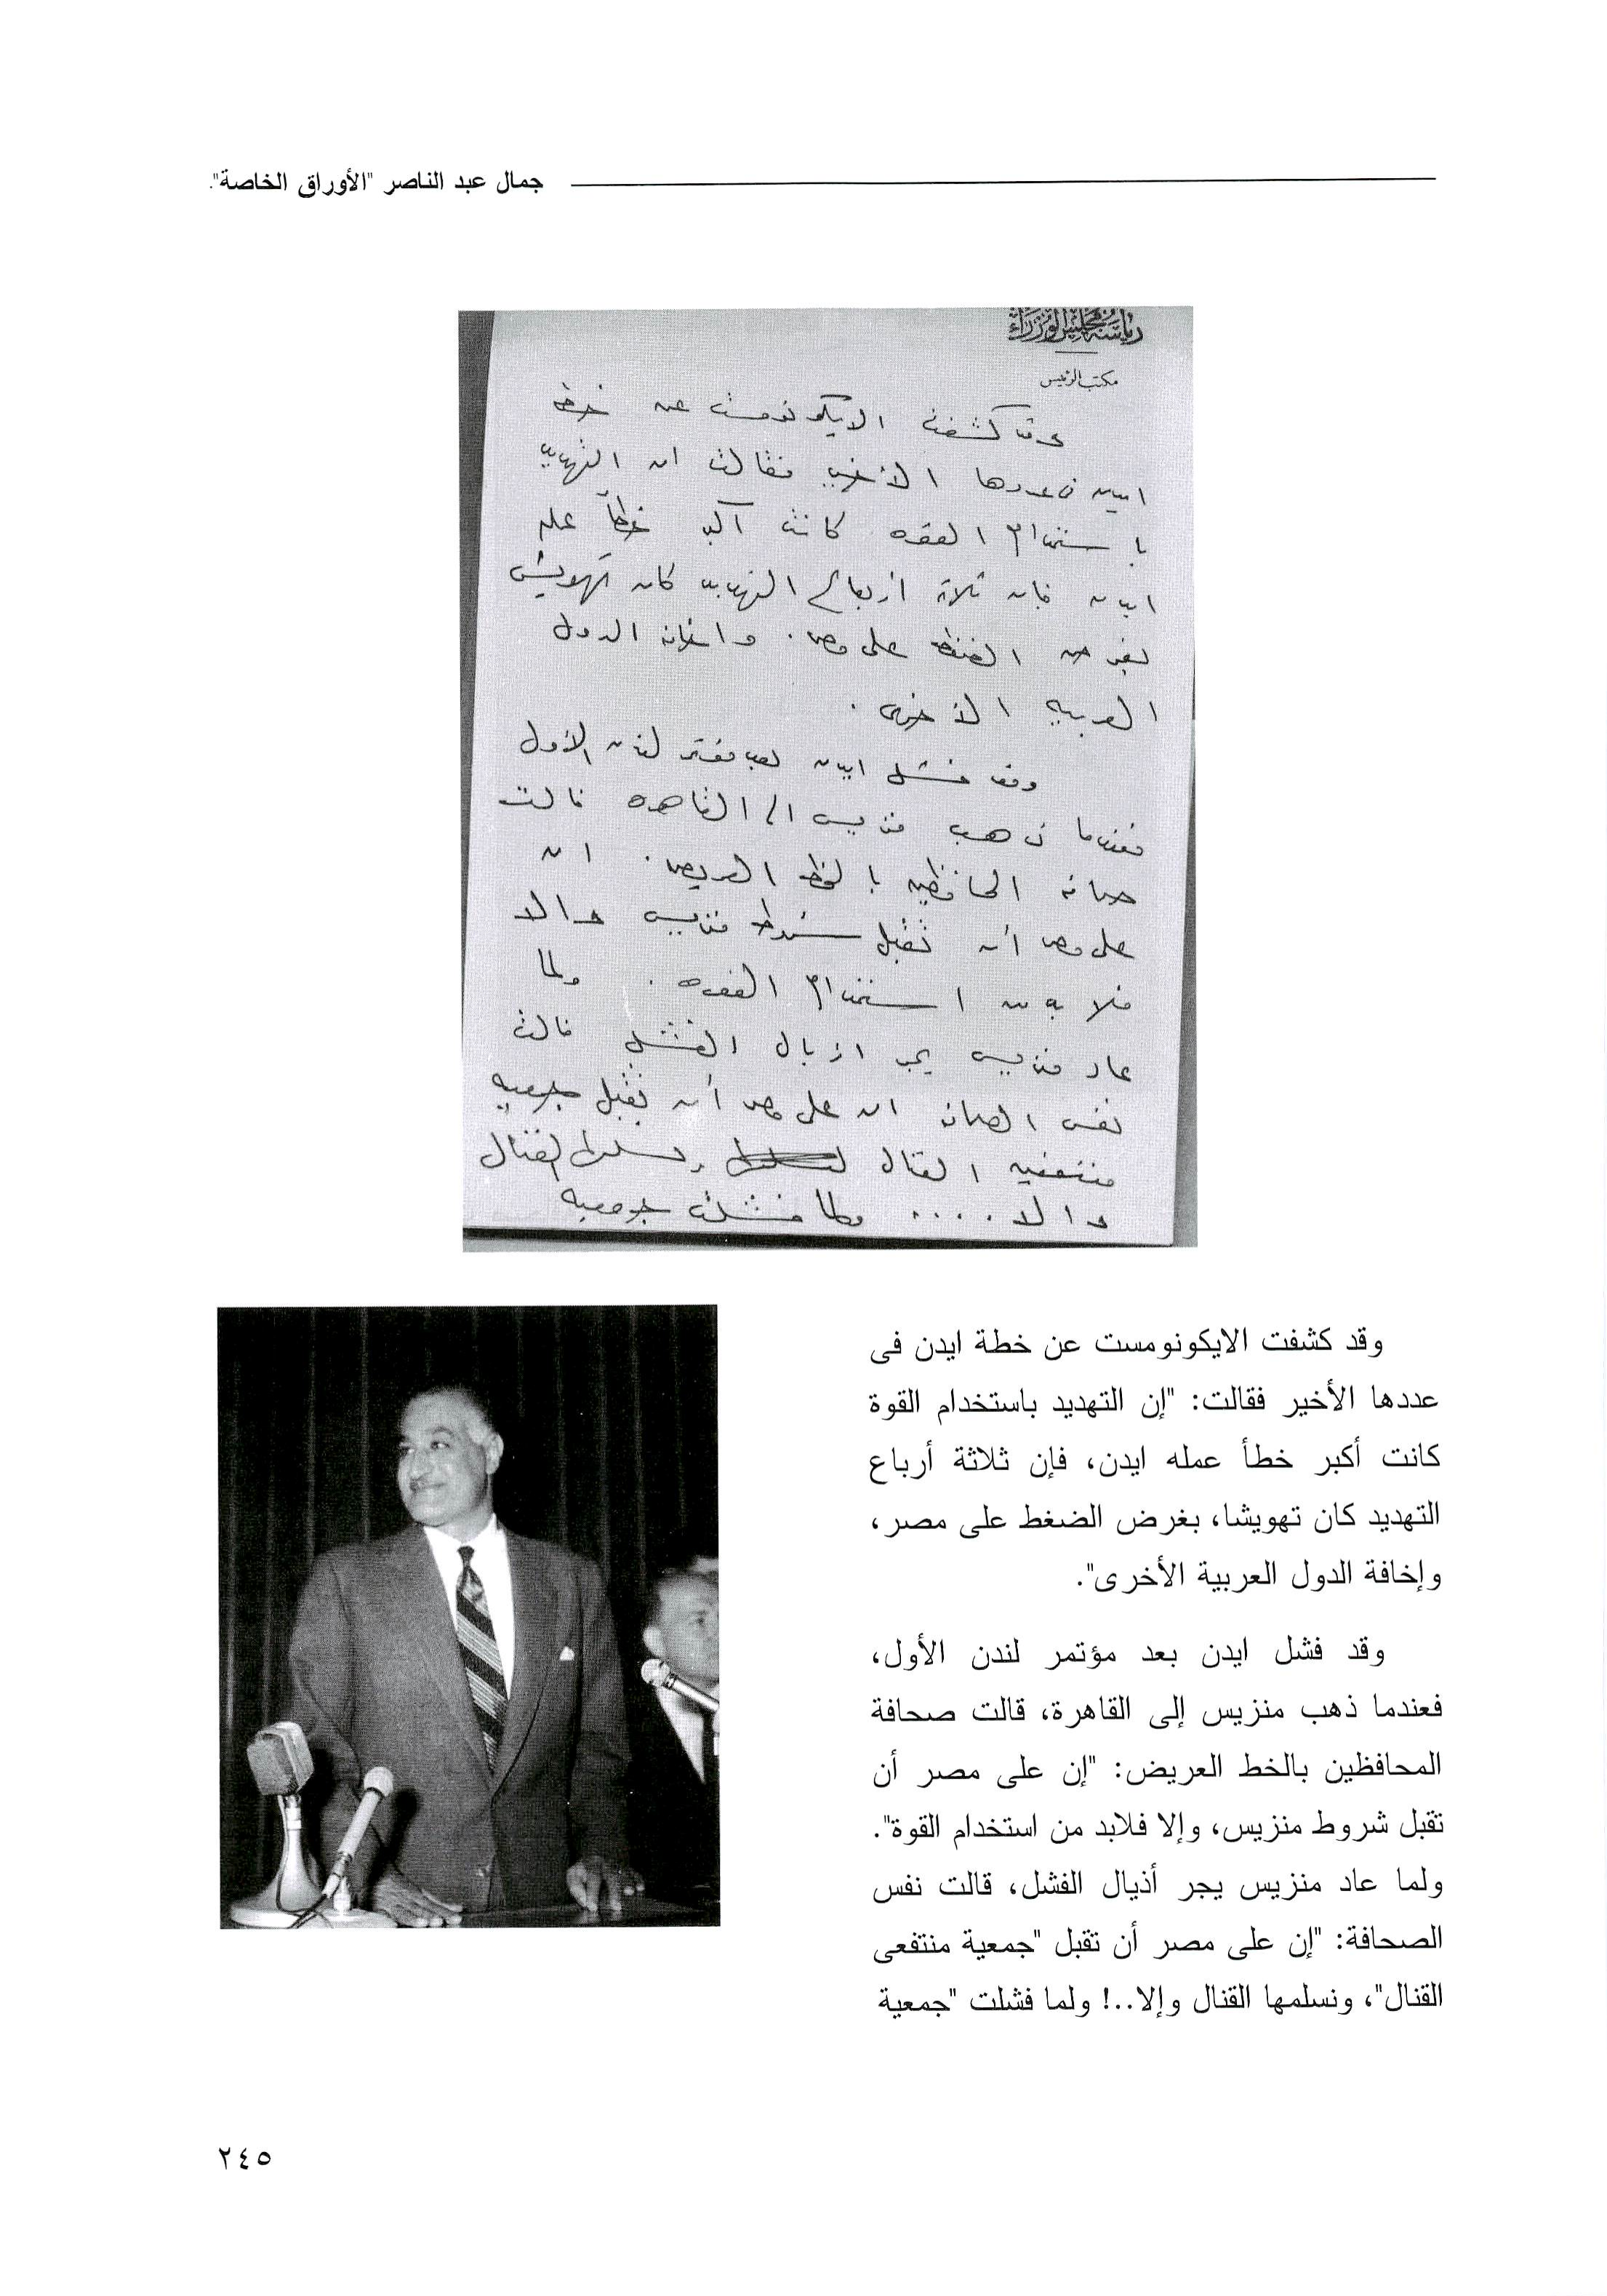 جمال عبد الناصر "الأوراق الخاصة".
رئاسة مجلس الوزراء
مكتب الرئيس
وقد كشفت الايكونومست عن خطة
ايدن في عددها الأخير فقالت ان التهديد
باستخدام القوه كانت أكبر خطأ عمله
ايدن فان ثلاثة ارباع التهديد كان تهويش
بغرض الضغط على مصر . واخافة الدول
العربيه الأخرى .
وقد فشل ايدن بعد مؤتمر لندن الأول
فعندما ذهب منزيس الى القاهره قالت
صحافة المحافظين بالخط العريض . ان
على مصر أن تقبل شروط منزيس والا
فلا بد من استخدام القوه . ولما
عاد منزيس يجر اذيال الفشل قالت
نفس الصحافة ان على مصر أن تقبل جمعية
منتفعين القنال ونسلمها القنال
والا .... ولما فشلت جمعية
وقد كشفت الايكونومست عن خطة ايدن فى
عددها الأخير فقالت: "إن التهديد باستخدام القوة
كانت أكبر خطأ عمله ايدن، فإن ثلاثة أرباع
التهديد كان تهويشا، بغرض الضغط على مصر،
وإخافة الدول العربية الأخرى".
وقد فشل ايدن بعد مؤتمر لندن الأول،
فعندما ذهب منزيس إلى القاهرة، قالت صحافة
المحافظين بالخط العريض: "إن على مصر أن
تقبل شروط منزيس، وإلا فلابد من استخدام القوة".
ولما عاد منزيس يجر أذيال الفشل، قالت نفس
الصحافة: "إن على مصر أن تقبل "جمعية منتفعى
القنال"، ونسلمها القنال وإلا..! ولما فشلت "جمعية
٢٤٥